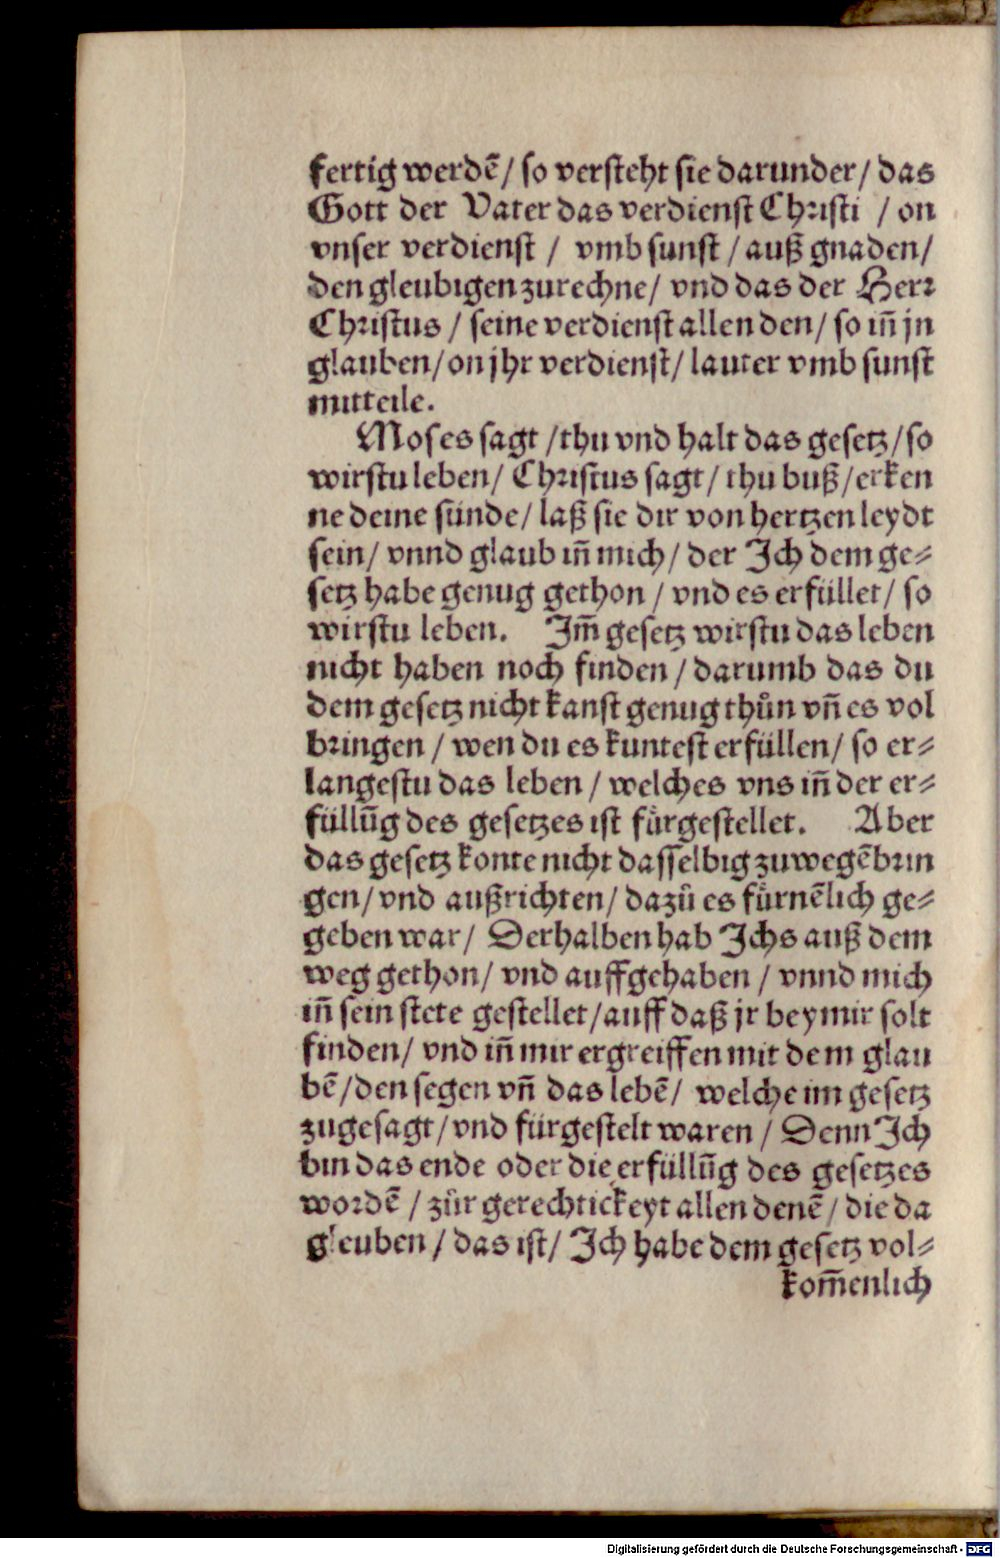 fertig werdē/ so versteht sie darunder/ das
Gott der Vater das verdienst Christi / on
vnser verdienst / vmb sunst / auß gnaden/
den gleubigen zurechne/ vnd das der Herr
Christus / seine verdienst allen den/ so iñ jn
glauben/ on jhr verdienst/ lauter vmb sunst
mitteile.
Moses sagt /thu vnd halt das gesetz/so
wirstu leben/ Christus sagt/ thu buß/erken
ne deine sünde/ laß sie dir von hertzen leydt
sein/ vnnd glaub iñ mich/ der Ich dem ge⸗
setz habe genug gethon / vnd es erfüllet/ so
wirstu leben. Im̄ gesetz wirstu das leben
nicht haben noch finden / darumb das du
dem gesetz nicht kanst genug thůn vñ es vol
bringen / wen du es kuntest erfüllen/ so er⸗
langestu das leben / welches vns iñ der er⸗
füllūg des gesetzes ist fürgestellet. Aber
das gesetz konte nicht dasselbig zuwegē brin
gen/ vnd außrichten/ dazů es fürnēlich ge⸗
geben war/ Derhalben hab Ichs auß dem
weg gethon/ vnd auffgehaben / vnnd mich
iñ sein stete gestellet/auff daß jr bey mir solt
finden/ vnd iñ mir ergreiffen mit dem glau
bē/den segen vñ das lebē/ welche im gesetz
zugesagt/vnd fürgestelt waren / Denn Ich
bin das ende oder die erfüllūg des gesetzes
wordē / zůr gerechtickeyt allen denē / die da
gleuben / das ist/ Ich habe dem gesetz vol⸗
kom̄enlich
Digitalisierung gefördert durch die Deutsche Forschungsgemeinschaft - DFG